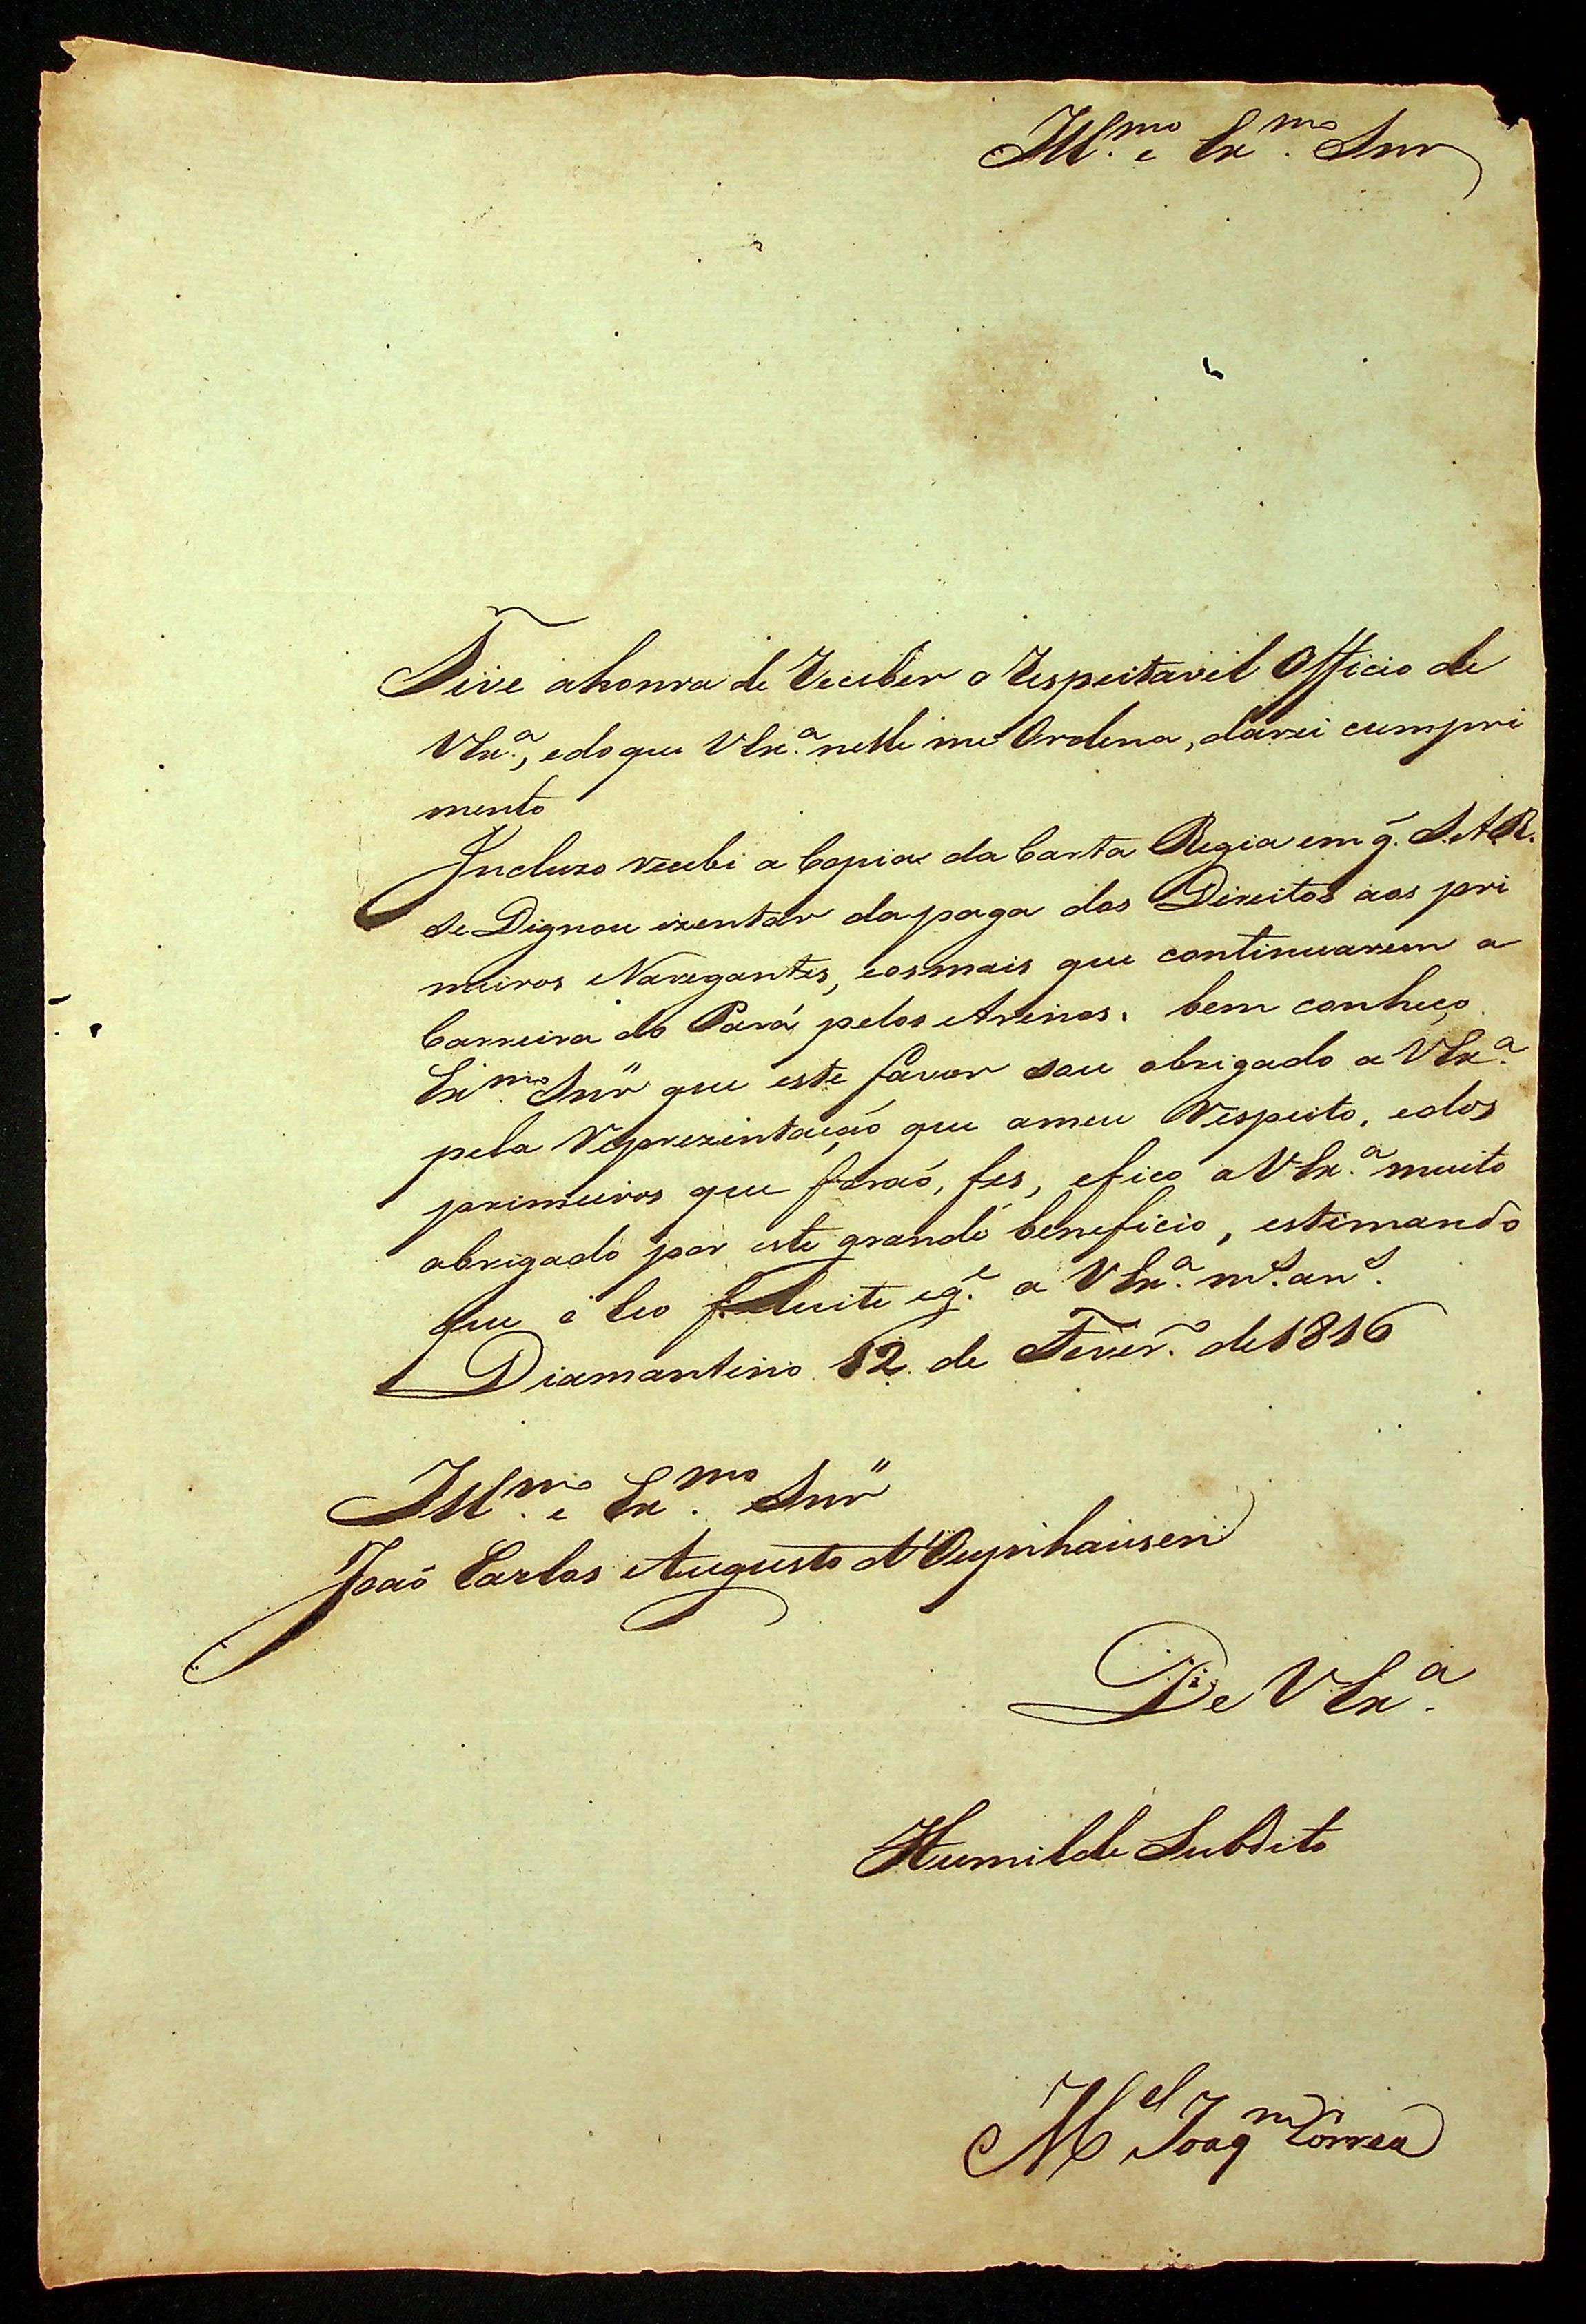 Ill.mo e Ex.mo Snr
Tive ahonra de Receber o Respeitavel Officio de
VEx.a, edoque VEx.a nelle me Ordena, darei cumpri
mento
Incluzo recebi a Copia da Carta Regia em q̃. S.A.R.
se Dignou izentar da paga dos Direitos aos pri
meiros Navegantes, eosmais que continuarem a
Carreira do Pará pelos Arinos. bem conheço
Ex.mo Snr̃ que este favor sou obrigado a VEx.a
pela Reprezentação que ameu Respeito, edos
primeiros que foraó, fes, efico a VEx.a muito
obrigado por este grande beneficio, estimando
que o Ceo felicite eg.e a VEx.a m.s an.s
Diamantino 12 de Fever.o de 1816
Ill.mo e Ex.mo Snr̃
Joaõ Carlos Augusto d'Oeynhausen
De VEx.a
Humilde Subdito
M.el Joaq.m Corrêa